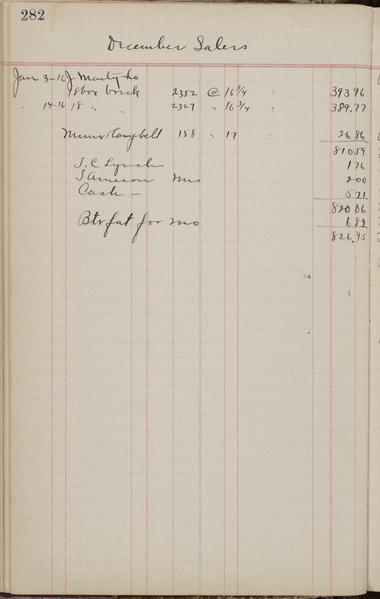 282
December Sales
Jan 3-16 J Marty Co
box brick 2352 @ 16 3/4 " 393 96
" 14-16 18 " " 2327 " 16 3/4 " 389.77
Campbell 158 " 17 26 86
810 59
J. C. Lynch 1 76
2 00
Cash — 5 71
820 06
Btr fat for mo 6 89
826.95